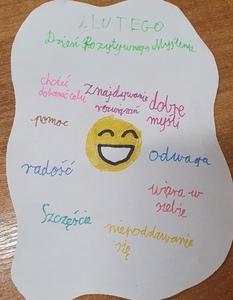 2 LUTEGO
Dzień Pozytywnego Myślenia
chcieć
dokonać celu
Znajdywanie
rozwiązań
dobre
myśli
pomoc
odwaga
radość
wiara w
siebie
Szczęście
niepoddawanie
się